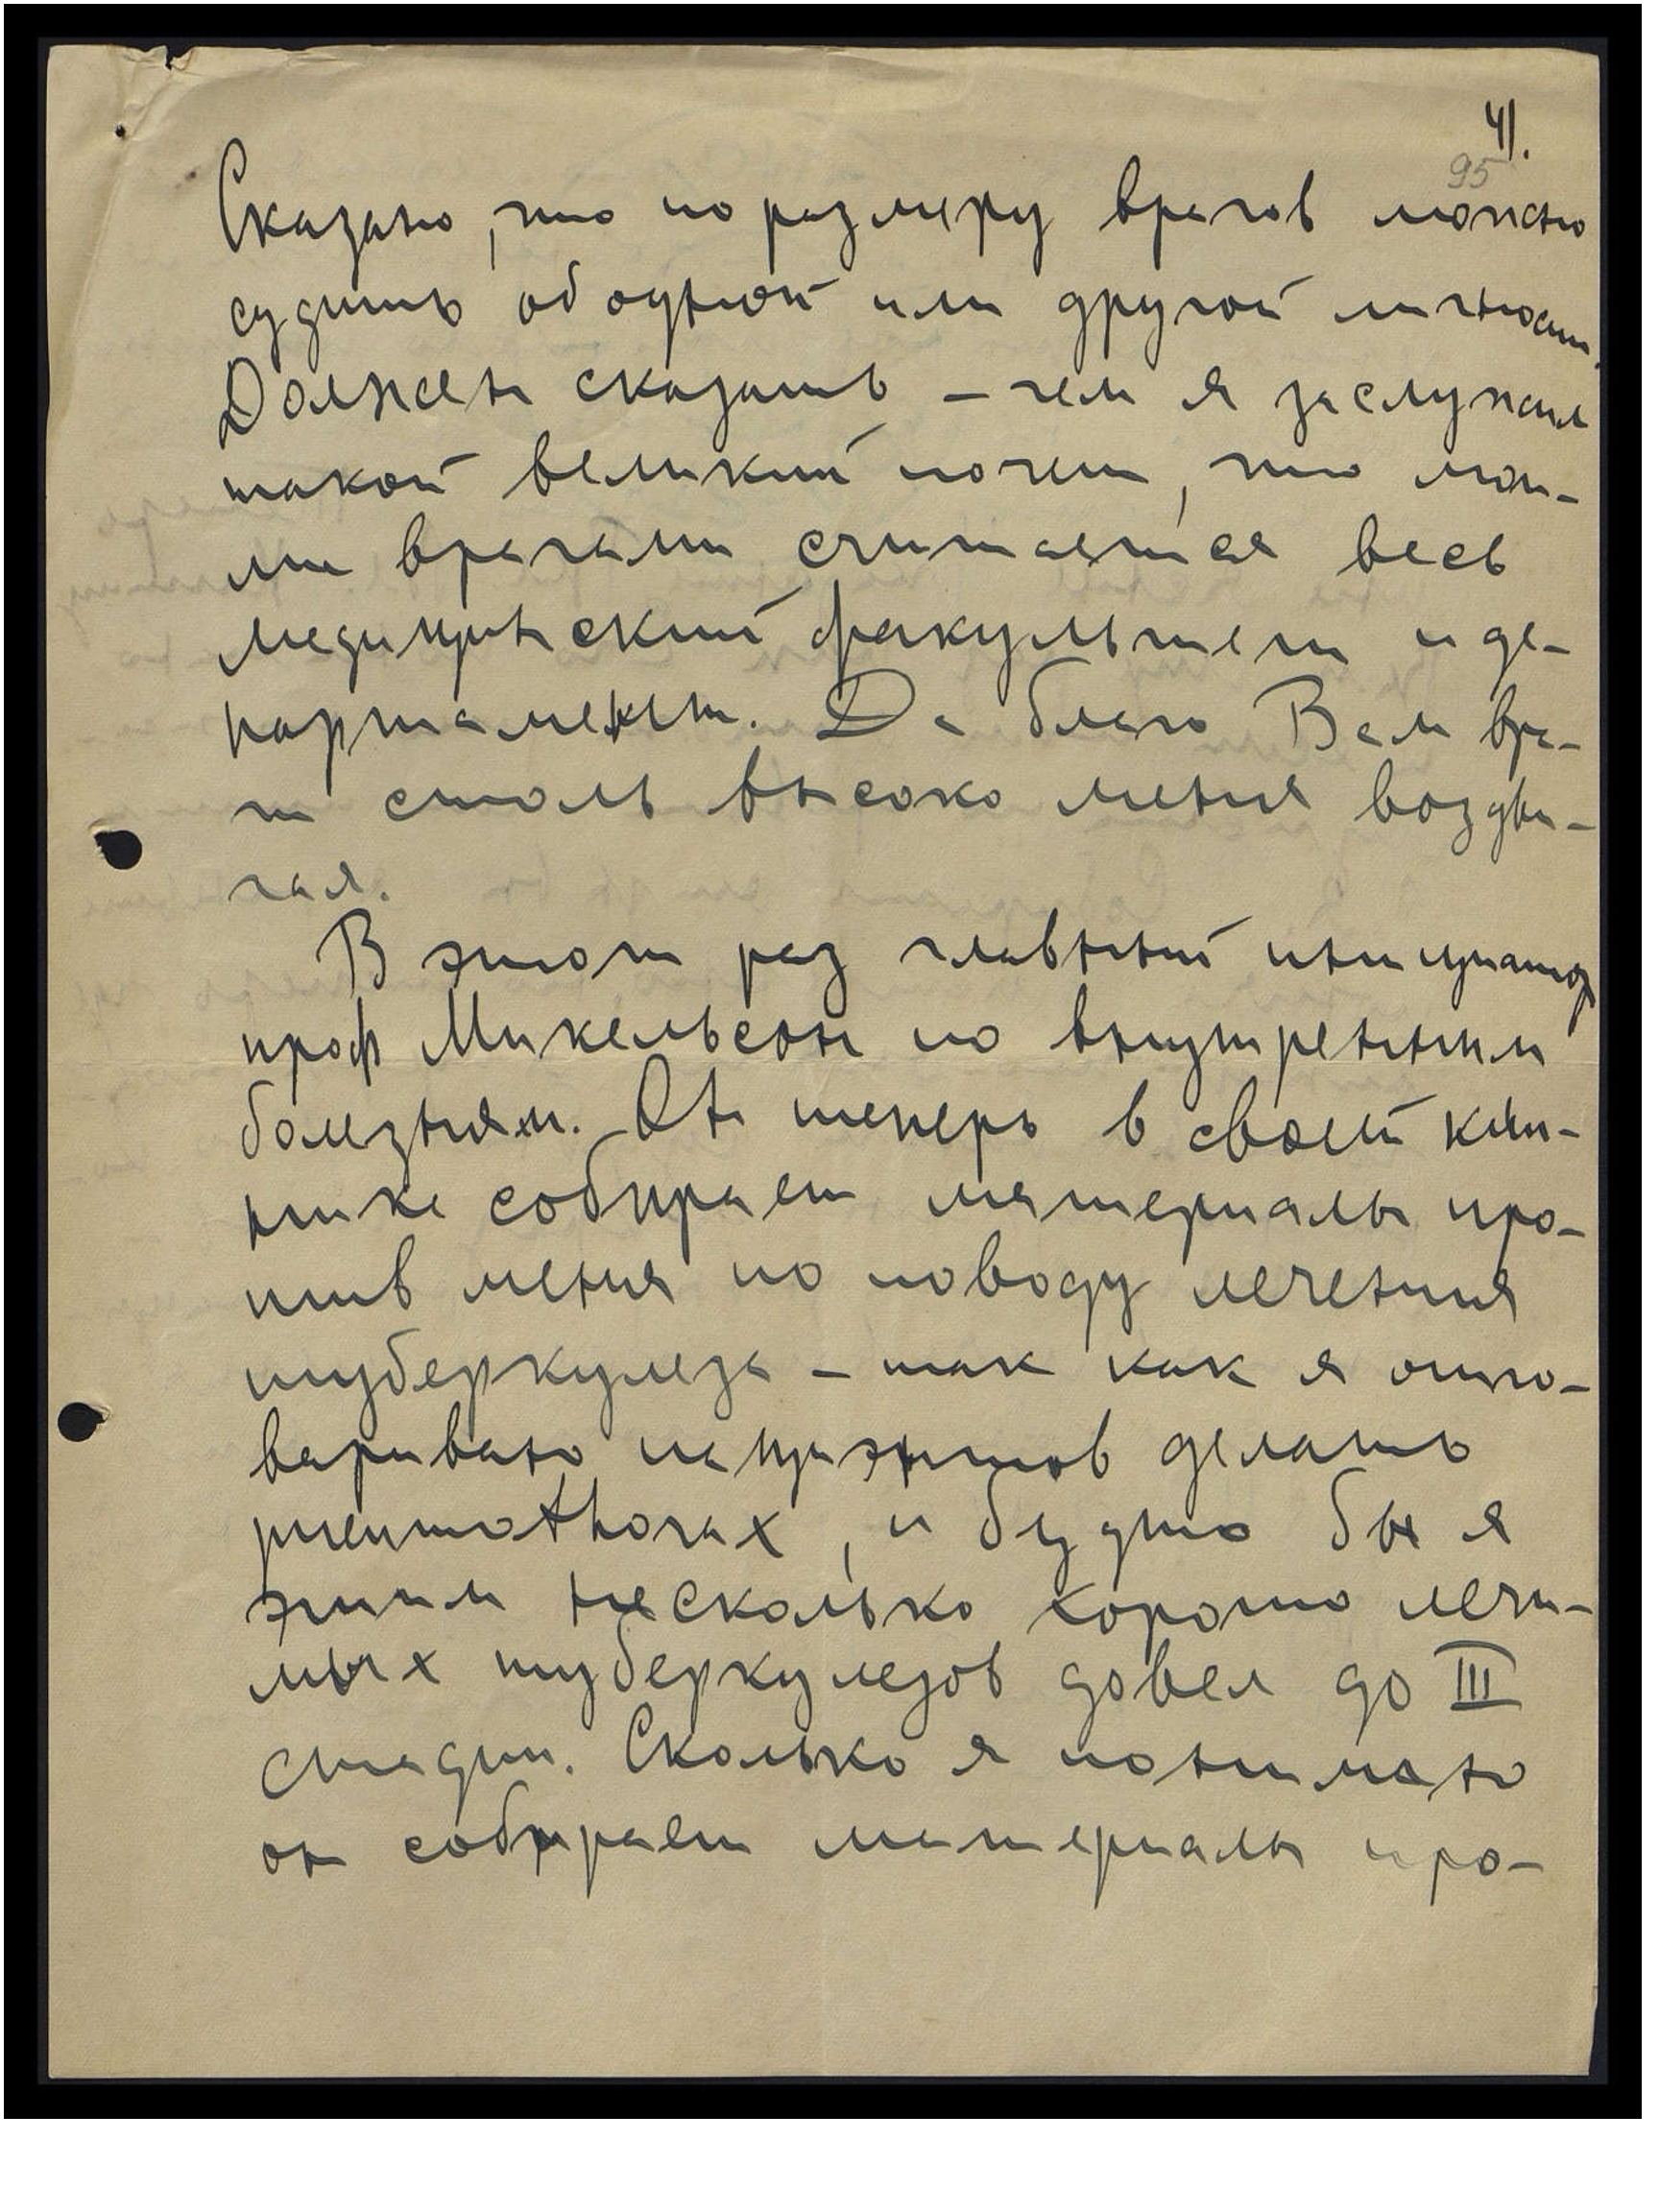 41.
95
Сказано, что по размеру врагов можно
судить об одной или другой личности.
Должен сказать – чем я заслужил
такой великий почет, что мои-
ми врагами считается весь
медицинский факультет и де-
партамент. Да благо Вам вра-
ги столь высоко меня воздви-
гая.
В этот раз главный инициатор
проф Микельсон по внутренним
болезням. Он теперь в своей кли-
нике собирает материалы про-
тив меня по поводу лечения
туберкулеза – так как я отго-
вариваю пациэнтов делать
pneumothorax, и будто бы я
этим несколько хорошо лечи-
мых туберкулезов довел до III
стадии. Сколько я понимаю
он собирает материалы про-